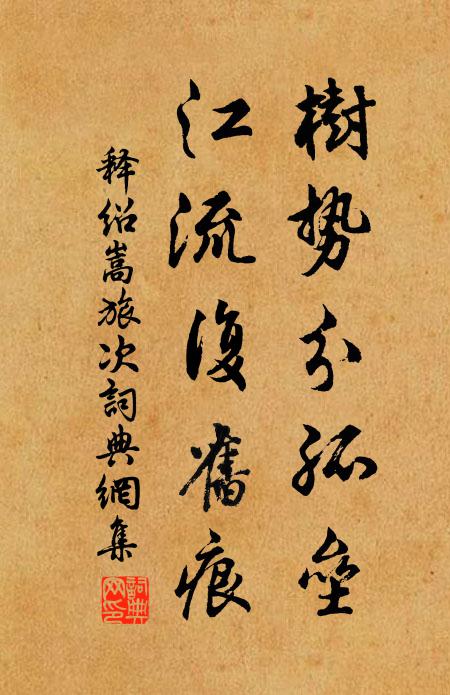 樹勢分孤壘
江流復舊痕
释紹嵩旅次詞典網集
詞典網印